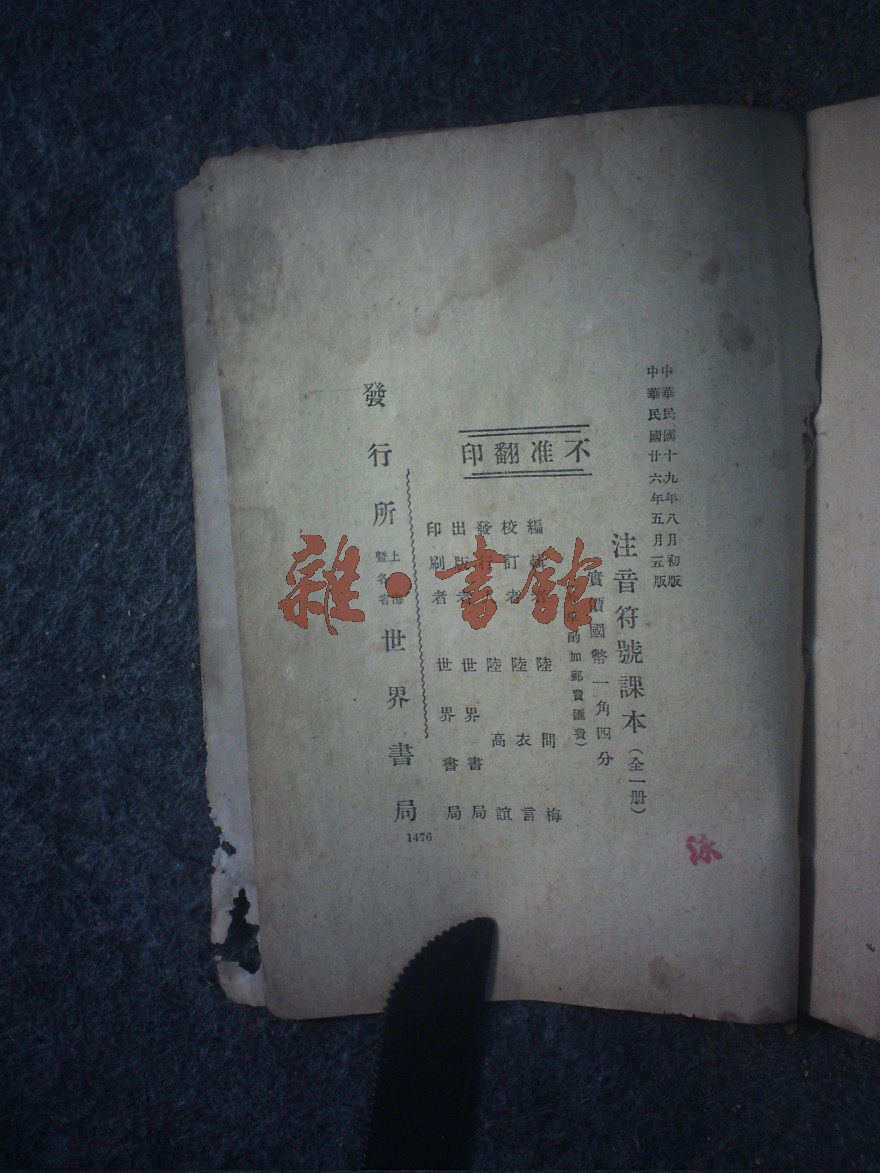 中華民國十九年八月初版
中華民國廿六年五月五版
注音符號課本（全一册）
實價國幣一角四分
酌加郵費匯費）
不准翻印
編輯者 陸問梅
校訂者 陸衣言
發行者 陸高誼
出版者 世界書局
印刷者 世界書局
發行所 上海暨各省 世界書局
1476
雜·書館